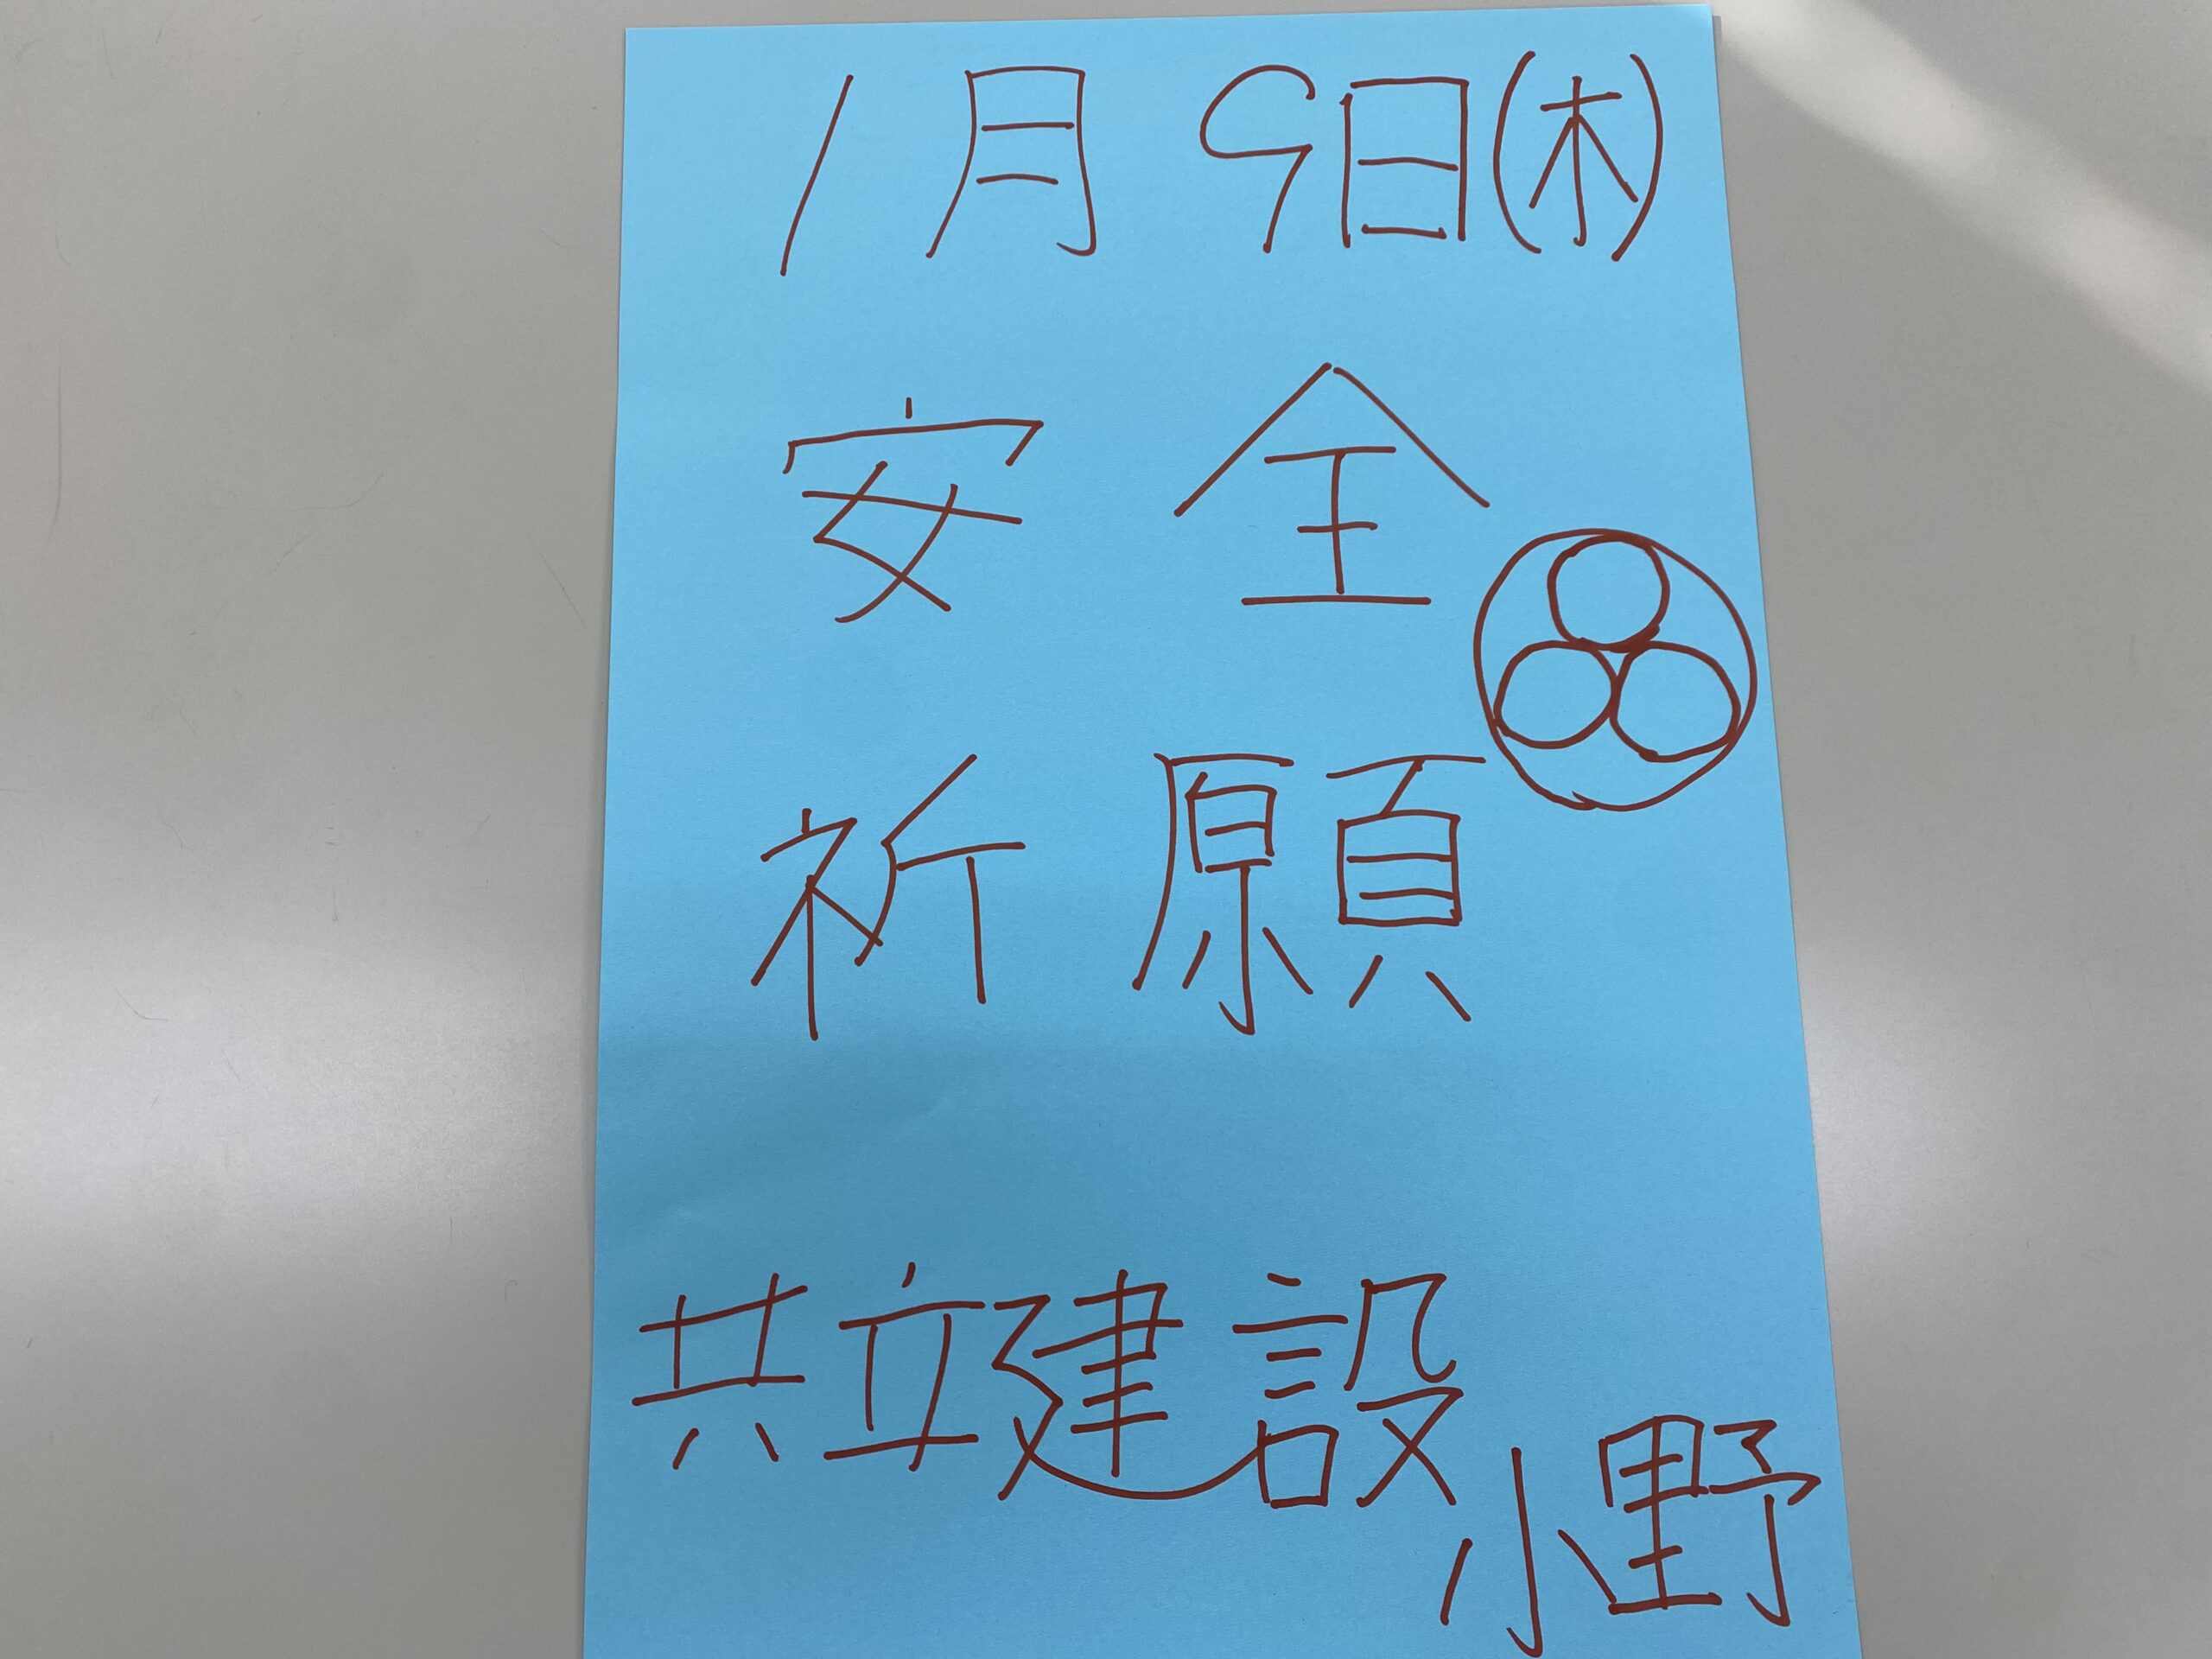 1月9日(木)
安全
祈願
共立建設
小野